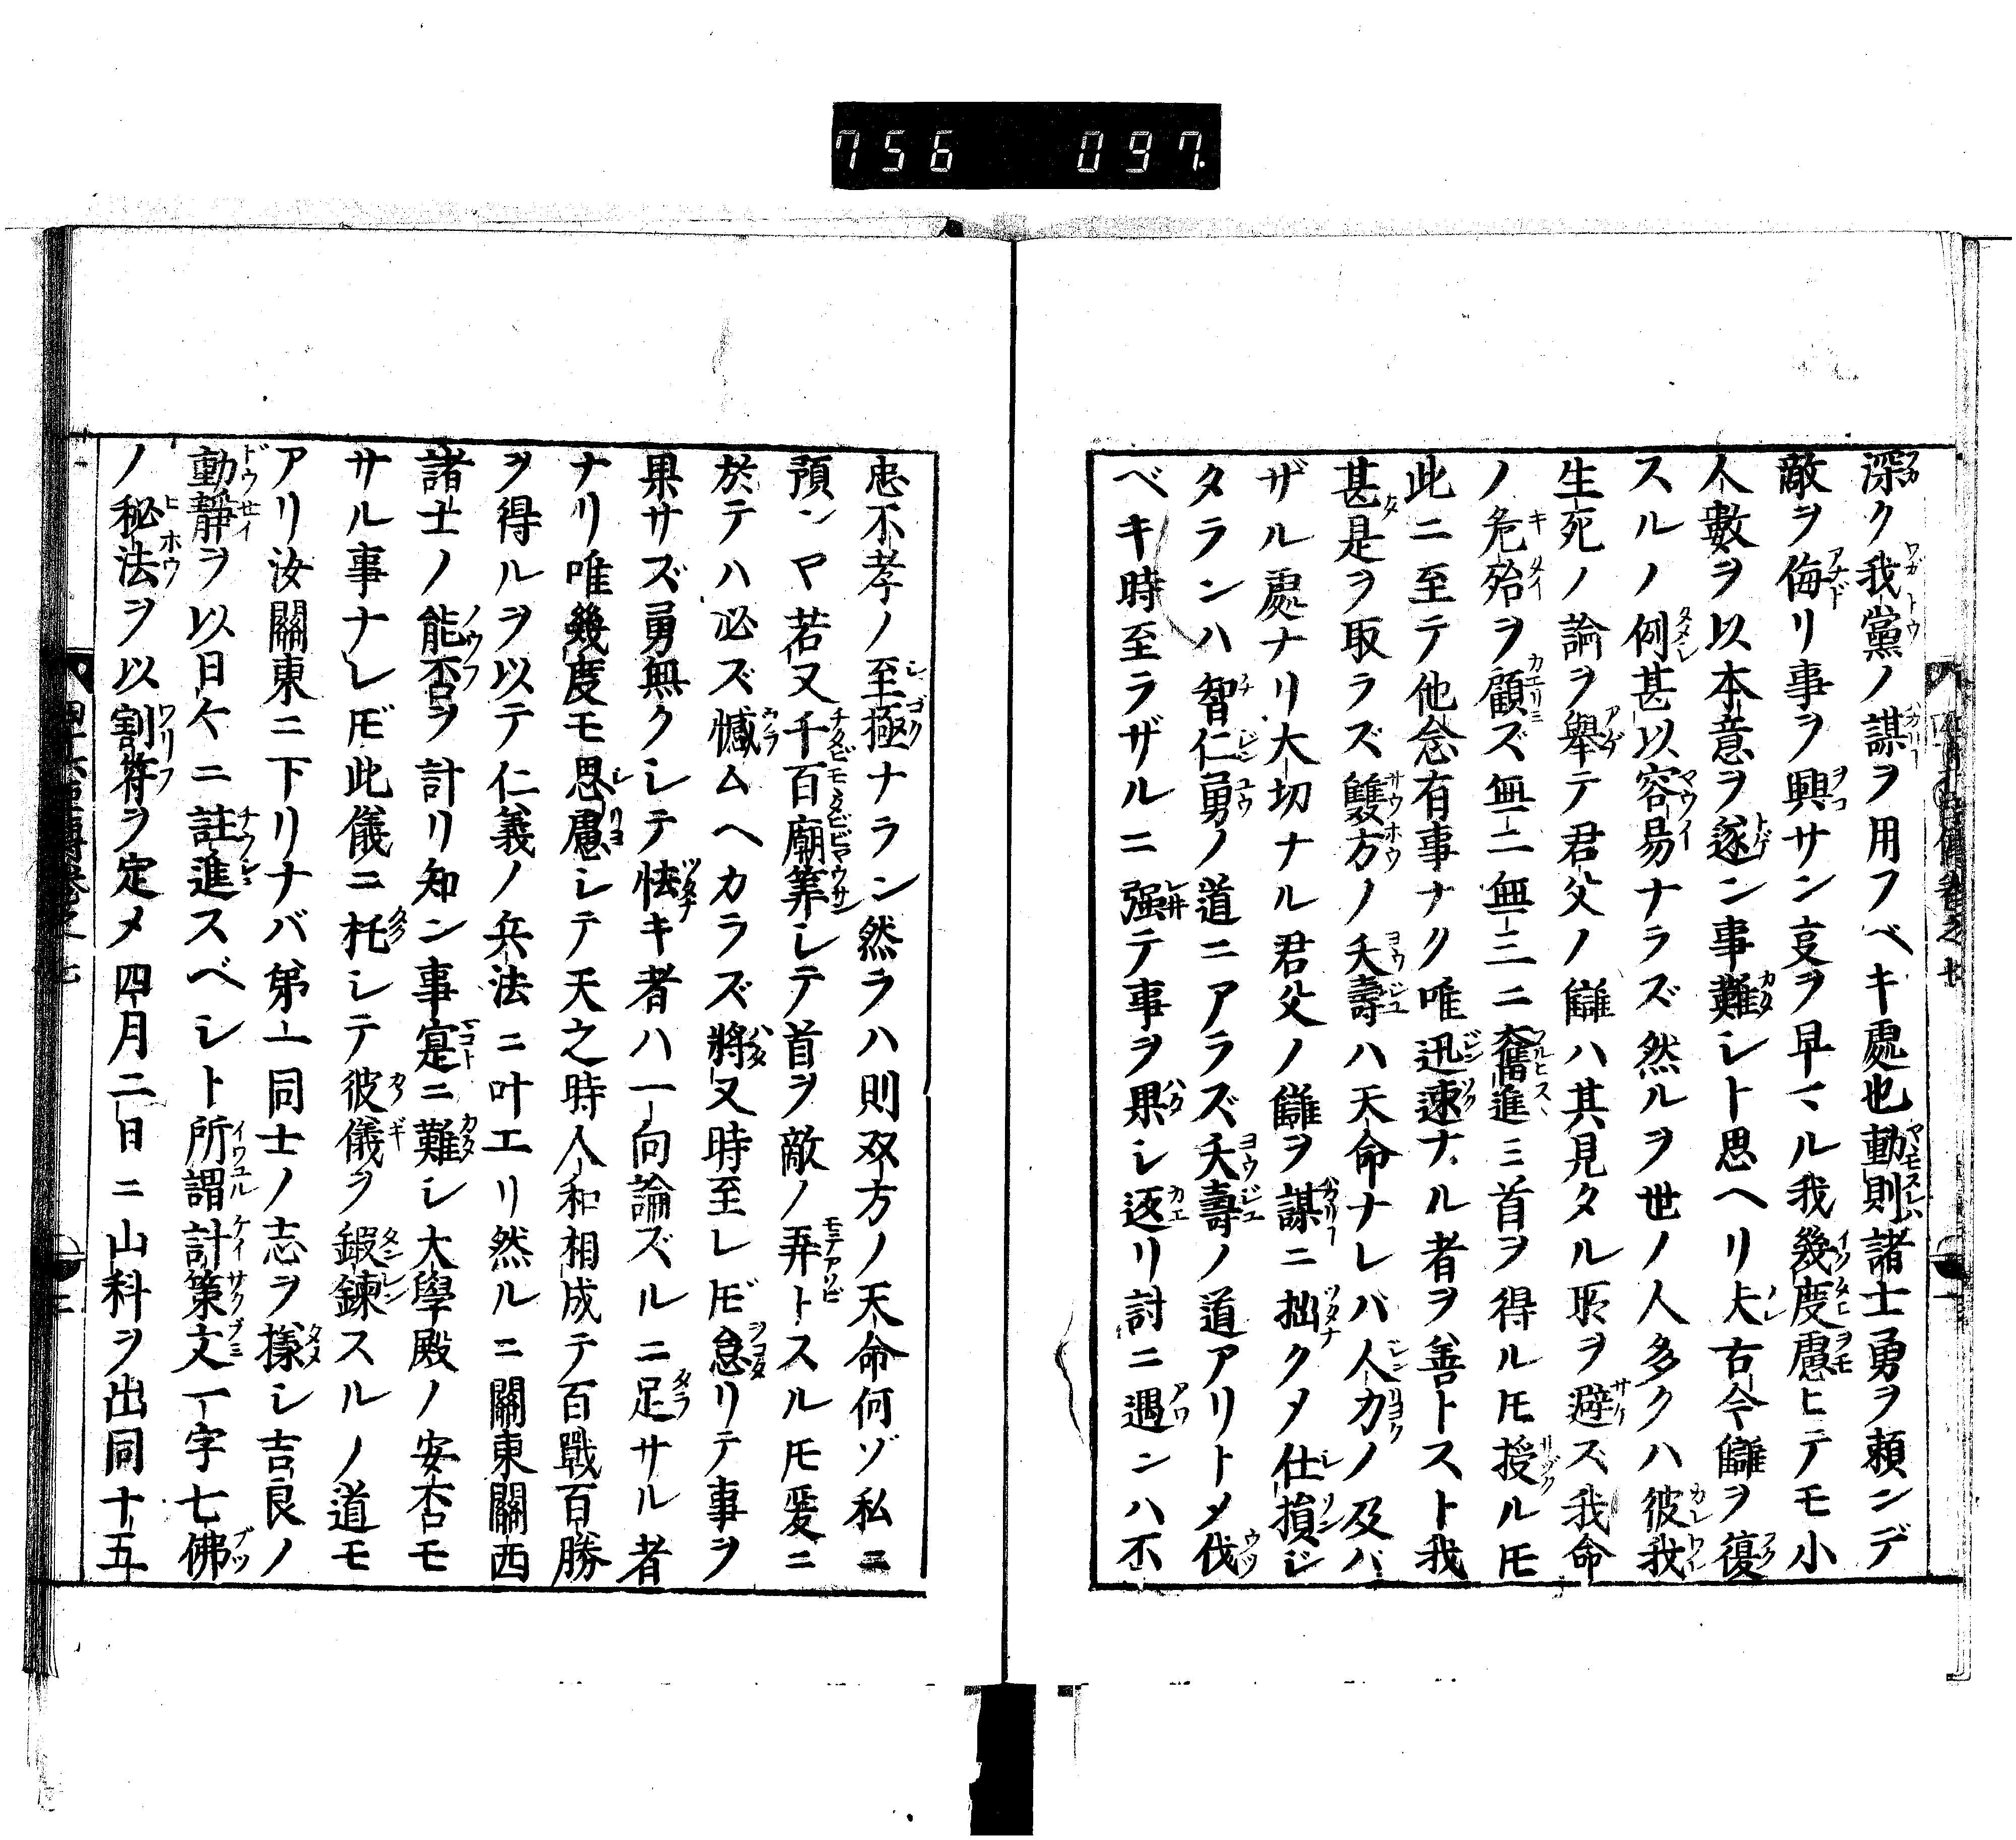 756 097.
深ク我黨ノ謀ヲ用フベキ處也動則諸士勇ヲ頼ンデ
敵ヲ侮リ事ヲ興サン㕝ヲ早マル我幾度慮ヒテモ小
人數ヲ以本意ヲ遂ン事難シト思ヘリ夫古今讎ヲ復
スルノ例甚以容易ナラズ然ルヲ世ノ人多クハ彼我
生死ノ論ヲ舉テ君父ノ讎ハ其見タル所ヲ避ズ我命
ノ危殆ヲ顧ズ無二無三ニ奮進ミ首ヲ得ルモ授ルモ
此ニ至テ他念有事ナク唯迅速ナル者ヲ善トスト我
甚是ヲ取ラズ雙方ノ夭壽ハ天命ナレバ人力ノ及バ
ザル處ナリ大切ナル君父ノ讎ヲ謀ニ拙クメ仕損ジ
タランハ智仁勇ノ道ニアラズ夭壽ノ道アリトメ伐
ベキ時至ラザルニ强テ事ヲ果シ返リ討ニ遇ンハ不
忠不孝ノ至極ナラン然ラハ則双方ノ天命何ゾ私ニ
預ンヤ若又千百廟筭シテ首ヲ敵ノ弄トスルモ爰ニ
於テハ必ズ憾ムヘカラズ將又時至レドモ怠リテ事ヲ
果サズ勇無クシテ怯キ者ハ一向論ズルニ足サル者
ナリ唯幾度モ思慮シテ天之時人和相成テ百戰百勝
ヲ得ルヲ以テ仁義ノ兵法ニ叶エリ然ルニ關東關西
諸士ノ能否ヲ計リ知ン事寔ニ難シ大學殿ノ安否モ
サル事ナレドモ此儀ニ托シテ彼儀ヲ鍛錬スルノ道モ
アリ汝關東ニ下リナバ第一同士ノ志ヲ様シ吉良ノ
動靜ヲ以日ケニ註進スベシト所謂計策文一字七佛
ノ秘法ヲ以割符ヲ定メ四月二日ニ山科ヲ出同十五